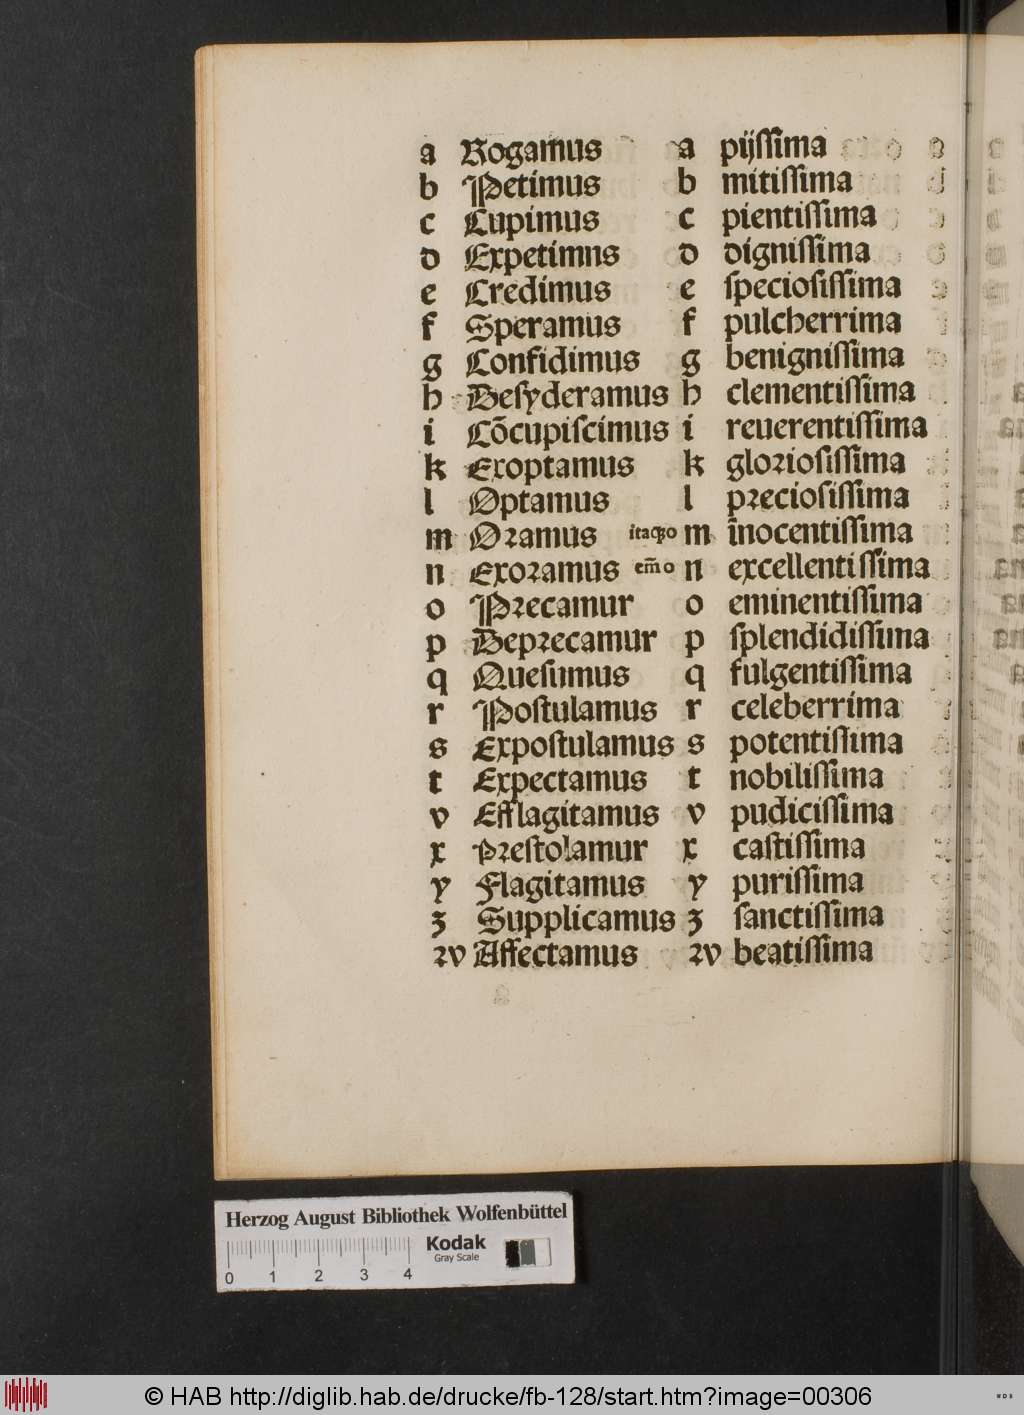 a Rogamus a pijſſima
b Petimus b mitiſſima
c Cupimus c pientiſſima
d Expetimns d digniſſima
e Credimus e ſpecioſiſſima
f Speramus f pulcherrima
g Confidimus g benigniſſima
h Deſyderamus h clementiſſima
i Cõcupiſcimus i reuerentiſſima
k Exoptamus k gloꝛioſiſſima
l Optamus l pꝛecioſiſſima
m Oꝛamus m ĩnocentiſſima
n Exoꝛamus n excellentiſſima
o Pꝛecamur o eminentiſſima
p Depꝛecamur p ſplendidiſſima
q Queſumus q fulgentiſſima
r Poſtulamus r celeberrima
s Expoſtulamus s potentiſſima
t Expectamus t nobiliſſima
v Efflagitamus v pudiciſſima
x Pꝛeſtolamur x caſtiſſima
y Flagitamus y puriſſima
z Supplicamus z ſanctiſſima
ꝛv Affectamus ꝛv beatiſſima
Herzog August Bibliothek Wolfenbüttel
Kodak
Gray Scale
0 1 2 3 4
© HAB http://diglib.hab.de/drucke/fb-128/start.htm?image=00306